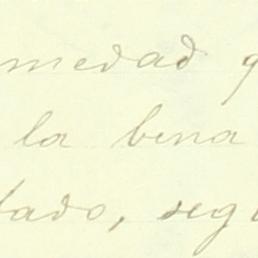 medad q
la bena
dado, seg